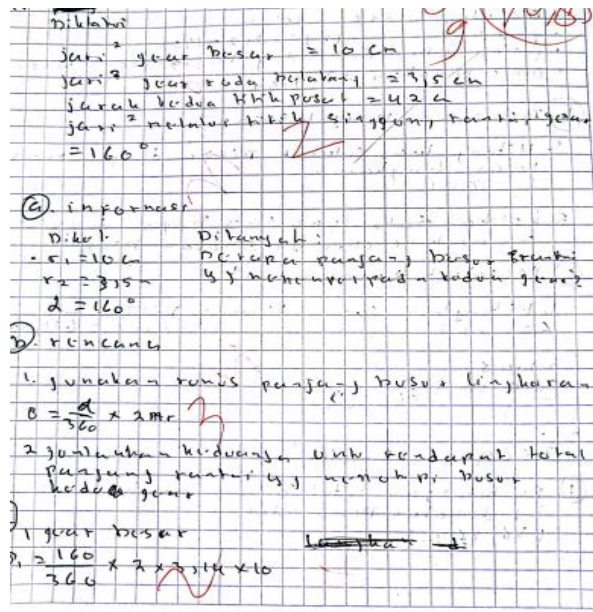 Diketahui
jari² gear besar = 10 cm
jari² gear roda belakang = 3,5 cm
jarak kedua titik pusat = 42 cm
jari² melalui titik singgung rantai, gear
= 160°.
2
9
a. informasi
Diket. Ditanyah :
• r₁ = 10 cm berapa panjang busur rantai
r₂ = 3,5 yg menempel pada kedua gear?
α = 160°
b. rencana
1. gunakan rumus panjang busur lingkaran
= α/360 × 2πr
3
2 jumlahkan keduanya untuk mendapat total
panjang rantai yg busur
kedua gear
1 gear besar
= 160/360 × 2 × 3,14 × 10